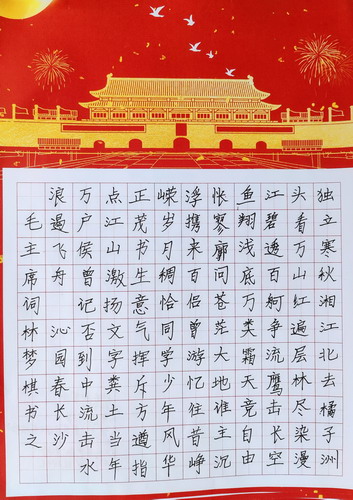 独立寒秋湘江北去橘子洲
头看万山红遍层林尽染漫
江碧透百舸争流鹰击长空
鱼翔浅底万类霜天竞自由
怅寥廓问苍茫大地谁主沉
浮携来百侣曾游忆往昔峥
嵘岁月稠恰同学少年风华
正茂书生意气挥斥方遒指
点江山激扬文字粪土当年
万户侯曾记否到中流击水
浪遏飞舟 沁园春长沙
毛主席词林梦棋书之